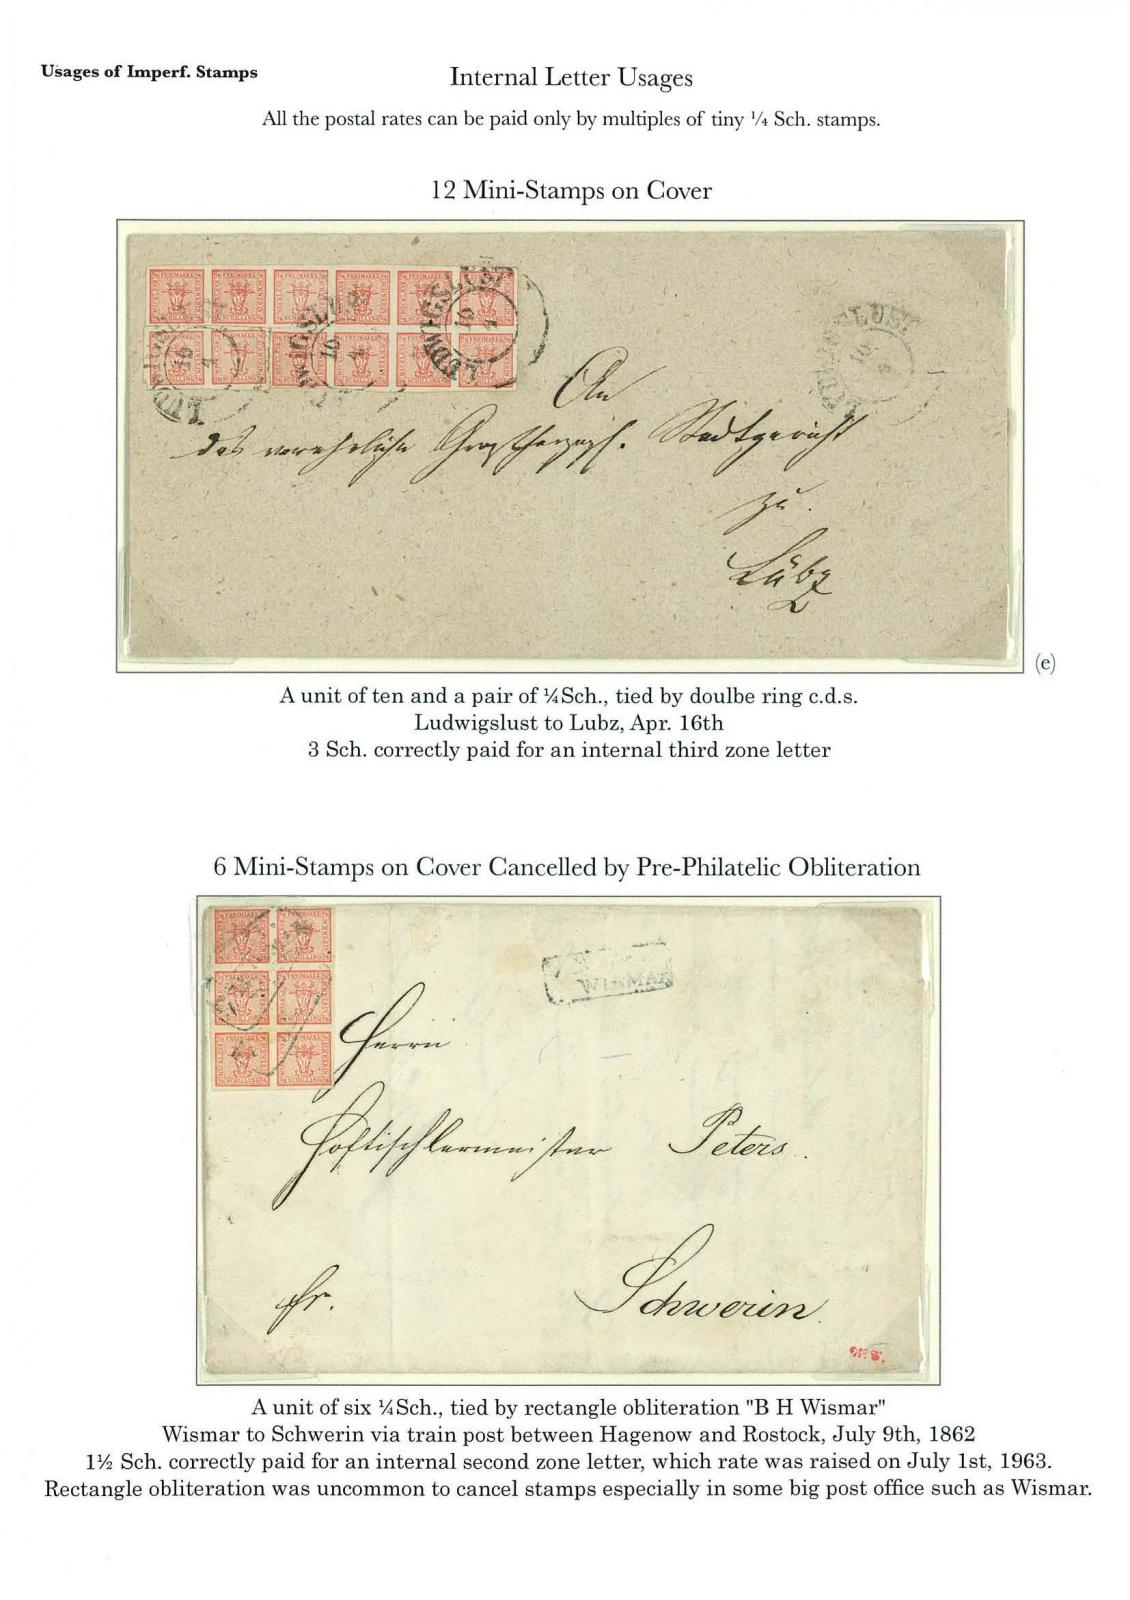 Usages of Imperf. Stamps
Internal Letter Usages
All the postal rates can be paid only by multiples of tiny ¼ Sch. stamps.
12 Mini-Stamps on Cover
FREIMARKE FREIMARKE FREIMARKE FREIMARKE FREIMARKE
LUDWIGSLUST
LUDWIGSLUST
An
das verehrliche Großherzogl. Stadtgericht
zu
Lübz
(e)
A unit of ten and a pair of ¼Sch., tied by doulbe ring c.d.s.
Ludwigslust to Lubz, Apr. 16th
3 Sch. correctly paid for an internal third zone letter
6 Mini-Stamps on Cover Cancelled by Pre-Philatelic Obliteration
FREIMARKE FREIMARKE
WISMAR
Herrn
Hoftischlermeister Peters.
fr.
Schwerin.
A unit of six ¼Sch., tied by rectangle obliteration "B H Wismar"
Wismar to Schwerin via train post between Hagenow and Rostock, July 9th, 1862
1½ Sch. correctly paid for an internal second zone letter, which rate was raised on July 1st, 1963.
Rectangle obliteration was uncommon to cancel stamps especially in some big post office such as Wismar.